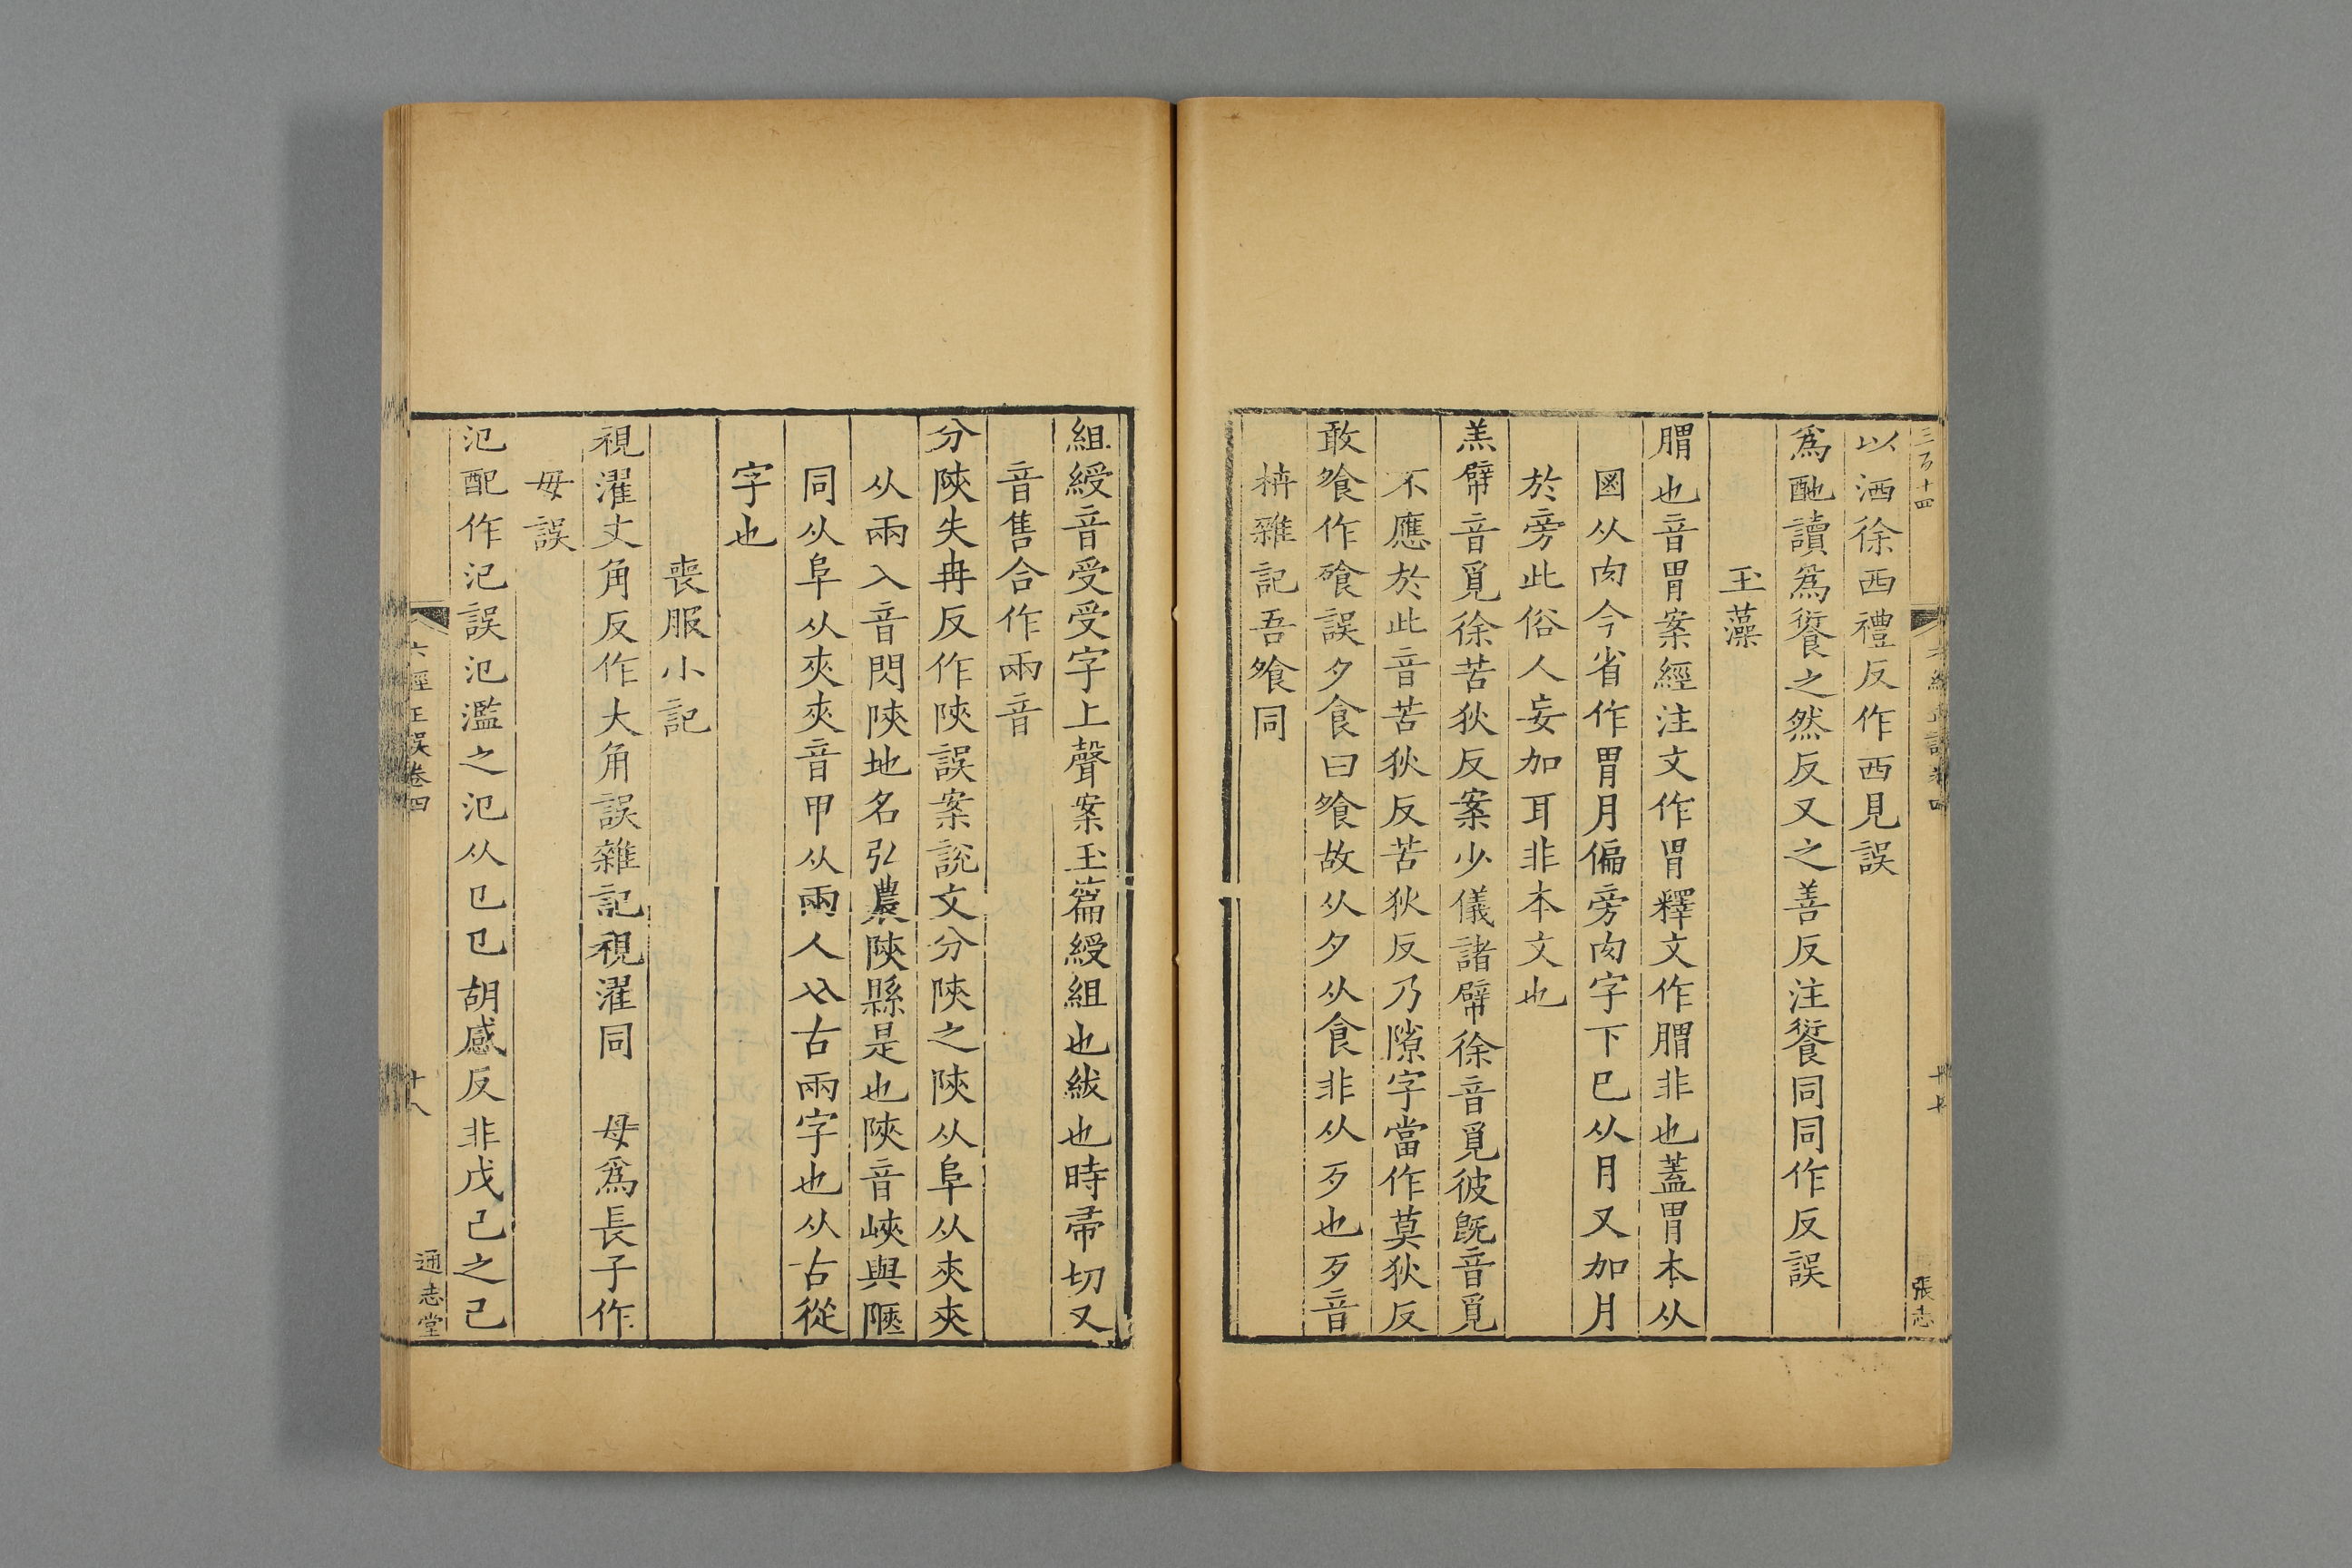 三百十四
張志
以洒徐西禮反作西見誤
爲酏讀爲餰之然反又之善反注餰同同作反誤
玉藻
膶也音胃案經注文作胃釋文作膶非也蓋胃本从
図从肉今省作胃月偏旁肉字下已从月又加月
於旁此俗人妄加耳非本文也
羔幦音覓徐苦狄反案少儀諸幦徐音覓彼旣音覓
不應於此音苦狄反苦狄反乃隙字當作莫狄反
敢飱作飡誤夕食曰飱故从夕从食非从歹也歹音
枿雜記吾飱同
組綬音受受字上聲案玉篇綬組也紱也時帚切又
音售合作兩音
分陝失冉反作陜誤案說文分陝之陝从阜从夾夾
从兩入音閃陝地名弘農陝縣是也陜音峽與陿
同从阜从夾夾音甲从兩人㒳古兩字也从古從
字也
喪服小記
視濯丈角反作大角誤雜記視濯同　母爲長子作
毋誤
氾配作汜誤氾濫之氾从㔾㔾胡感反非戊己之己
六經正誤卷四
十八
通志堂